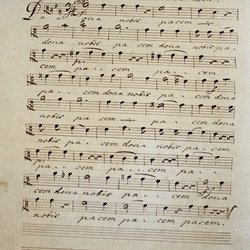 D
dona nobis pacem
dona nobis pacem dona nobis pa
cem pa cem pa cem
dona nobis pa cem dona nobis
pa cem dona nobis pacem
dona nobis pacem dona nobis pacem
pa cem pa cem pa
cem dona nobis pacem dona
nobis pacem pacem pacem.